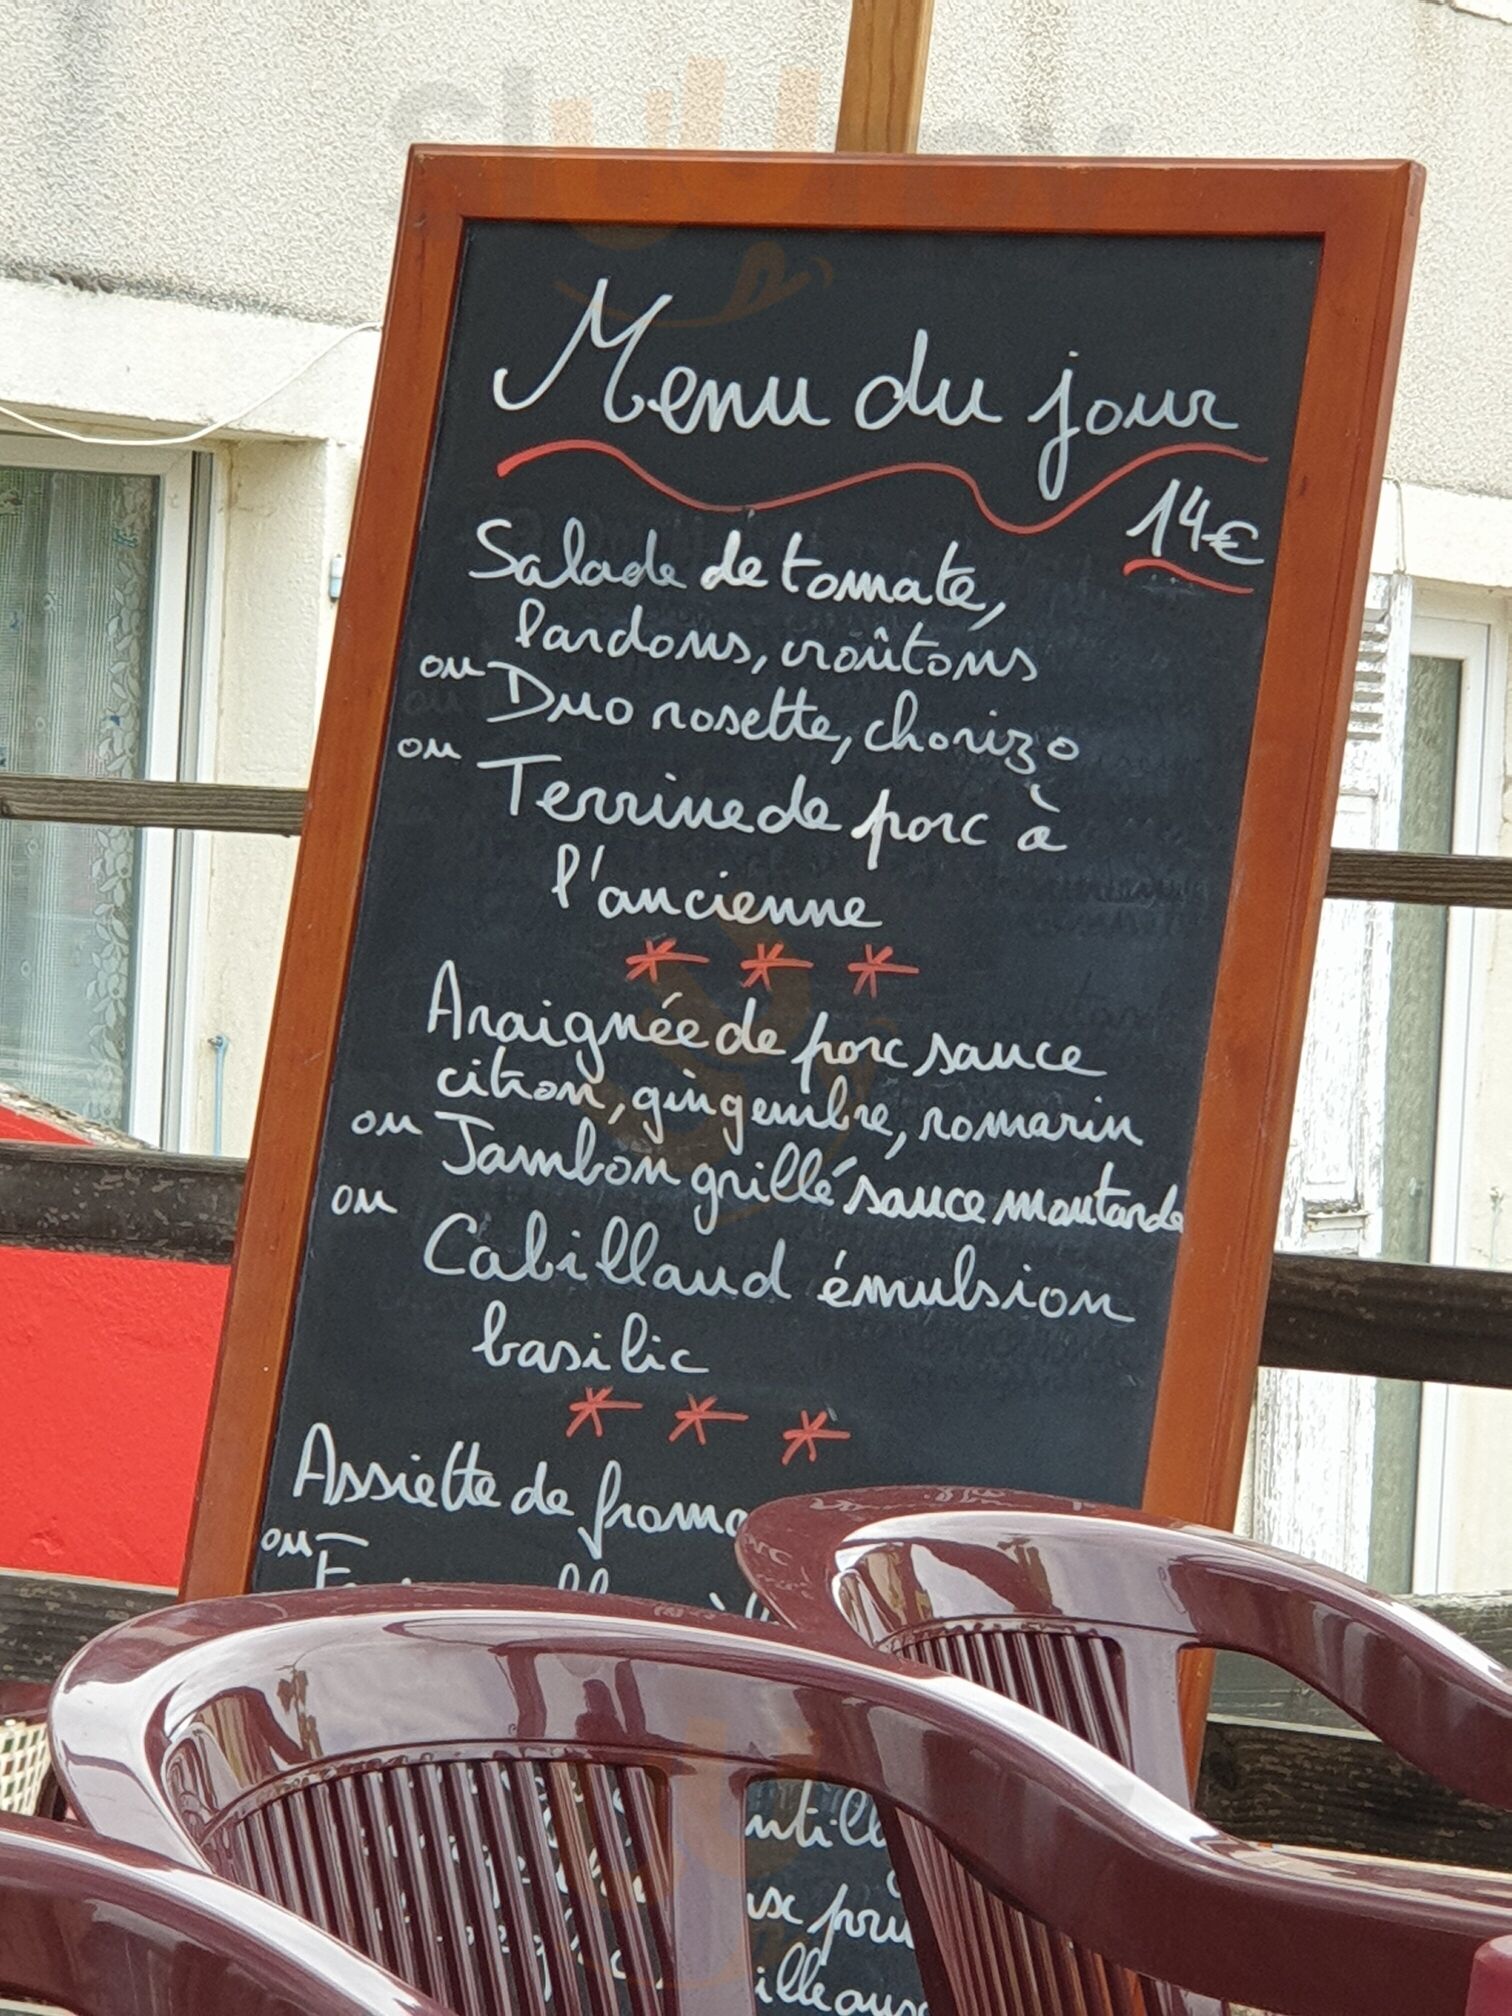 Menu du jour
14€
Salade de tomate,
lardons, croûtons
ou Duo rosette, chorizo
ou Terrine de porc à
l'ancienne
* * *
Araignée de porc sauce
citron, gingembre, romarin
ou Jambon grillé sauce moutarde
ou Cabillaud émulsion
basilic
* * *
Assiette de
ou